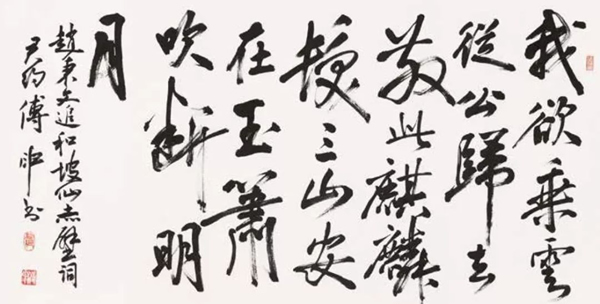 我欲乘雲
從公歸去
散此麒麟
髮三山安
在玉簫
吹斷明
月
趙秉文追和坡仙赤壁詞
君約傅申書